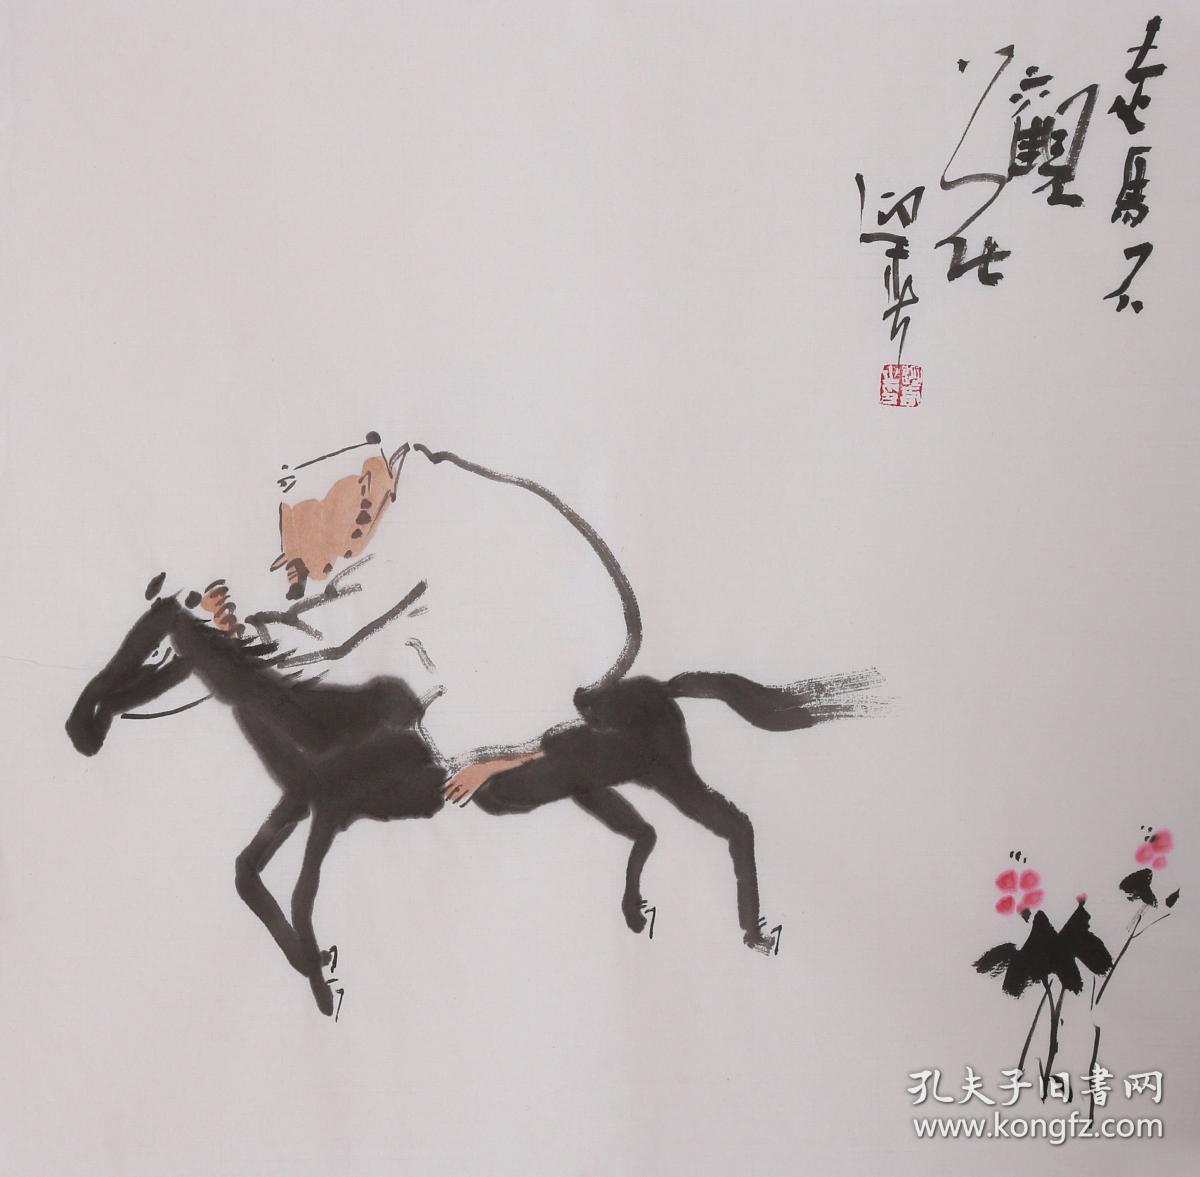 走馬不
觀
花
孔夫子旧書网
www.kongfz.com